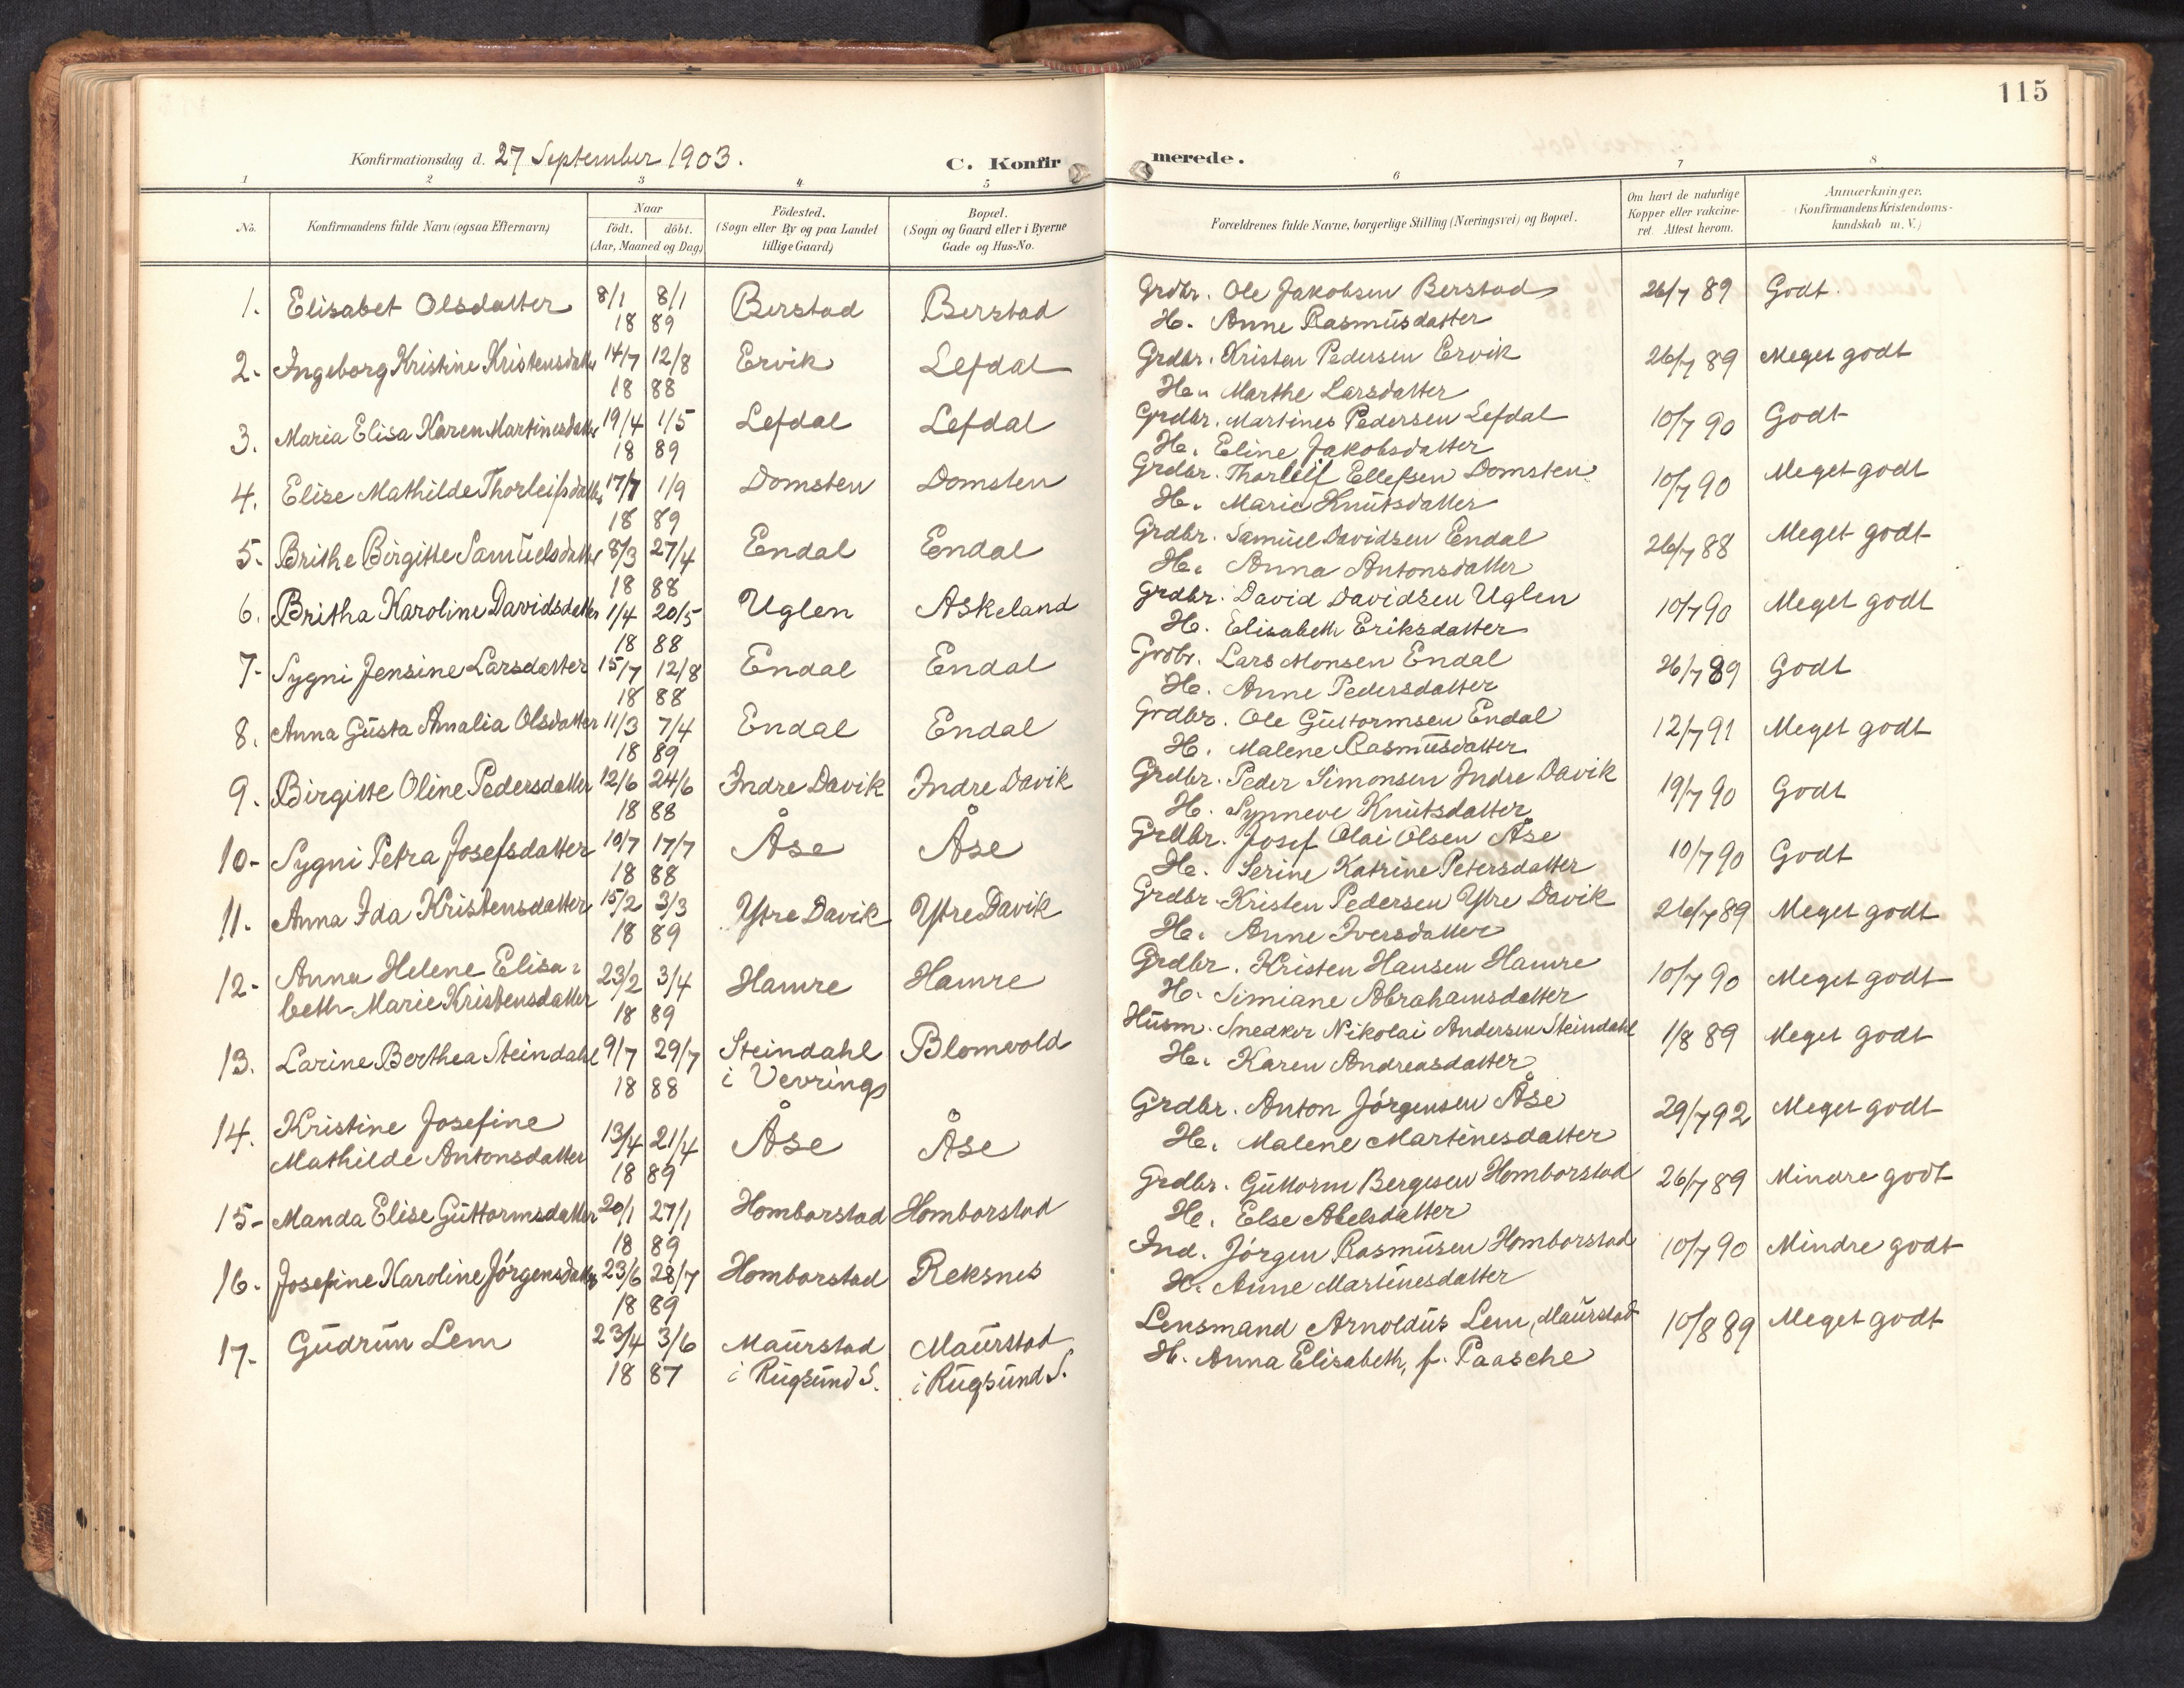 115
Konfirmationsdag d. 27 September 1903.
C. Konfirmerede.
1 2 3 4 5 6 7 8
No.
Konfirmandens fulde Navn (ogsaa Efternavn)
Naar
födt. döbt.
(Aar, Maaned og Dag)
Födested.
(Sogn eller By og paa Landet
tillige Gaard)
Bopæl.
(Sogn og Gaard eller i Byerne
Gade og Hus-No.
Forældrenes fulde Navne, borgerlige Stilling (Næringsvei) og Bopæl.
Om havt de naturlige
Kopper eller vakcine-
ret. Attest herom.
Anmærkninger.
(Konfirmandens Kristendoms-
kundskab m. V.)
1. Elisabet Olsdatter 8/1 8/1 Berstad Berstad Grdbr. Ole Jakobsen Berstad 26/7 89 Godt.
18 89 H. Anne Rasmusdatter
2. Ingeborg Kristine Kristensdatter 14/7 12/8 Ervik Lefdal Grdbr. Kristen Pedersen Ervik 26/7 89 Meget godt
18 88 H. Marthe Larsdatter
3. Maria Elisa Karen Martinesdatter 19/4 1/5 Lefdal Lefdal Grdbr. Martines Pedersen Lefdal 10/7 90 Godt
18 89 H. Eline Jakobsdatter
4. Elise Mathilde Thorleifsdatter 17/7 1/9 Domsten Domsten Grdbr. Thorleif Ellefsen Domsten 10/7 90 Meget godt
18 89 H. Marie Knutsdatter
5. Brithe Birgitte Samuelsdatter 8/3 27/4 Endal Endal Grdbr. Samuel Davidsen Endal 26/7 88 Meget godt
18 88 H. Anna Antonsdatter
6. Britha Karoline Davidsdatter 1/4 20/5 Uglen Askeland Grdbr. David Davidsen Uglen 10/7 90 Meget godt
18 88 H. Elisabeth Eriksdatter
7. Sygni Jensine Larsdatter 15/7 12/8 Endal Endal Grdbr. Lars Monsen Endal 26/7 89 Godt
18 88 H. Anne Pedersdatter
8. Anna Gusta Amalia Olsdatter 11/3 7/4 Endal Endal Grdbr. Ole Guttormsen Endal 12/7 91 Meget godt
18 89 H. Malene Rasmusdatter
9. Birgitte Oline Pedersdatter 12/6 24/6 Indre Davik Indre Davik Grdbr. Peder Simonsen Indre Davik 19/7 90 Godt
18 88 H. Synneve Knutsdatter
10. Sygni Petra Josefsdatter 10/7 17/7 Åse Åse Grdbr. Josef Olai Olsen Åse 10/7 90 Godt
18 88 H. Serine Katrine Petersdatter
11. Anna Ida Kristensdatter 15/2 3/3 Ytre Davik Ytre Davik Grdbr. Kristen Pedersen Ytre Davik 26/7 89 Meget godt
18 89 H. Anne Iversdatter
12. Anna Helene Elisa- 23/2 3/4 Hamre Hamre Grdbr. Kristen Hansen Hamre 10/7 90 Meget godt
beth Marie Kristensdatter 18 89 H. Simiane Abrahamsdatter
13. Larine Berthea Steindahl 9/7 29/7 Steindahl Blomvold Husm. Snedker Nikolai Andersen Steindahl 1/8 89 Meget godt
18 88 i Vevring H. Karen Andreasdatter
14. Kristine Josefine 13/4 21/4 Åse Åse Grdbr. Anton Jörgensen Åse 29/7 92 Meget godt
Mathilde Antonsdatter 18 89 H. Malene Martinesdatter
15. Manda Elise Guttormsdatter 20/1 27/1 Homborstad Homborstad Grdbr. Guttorm Bergesen Homborstad 26/7 89 Mindre godt
18 89 H. Else Abelsdatter
16. Josefine Karoline Jörgensdatter 23/6 28/7 Homborstad Reksnes Ind. Jörgen Rasmusen Homborstad 10/7 90 Mindre godt
18 89 H. Anne Martinesdatter
17. Gudrun Lem 23/4 3/6 Maurstad Maurstad Lensmand Arnoldus Lem, Maurstad 10/8 89 Meget godt
18 87 i Rugsund S. i Rugsund S. H. Anna Elisabeth, f. Paasche